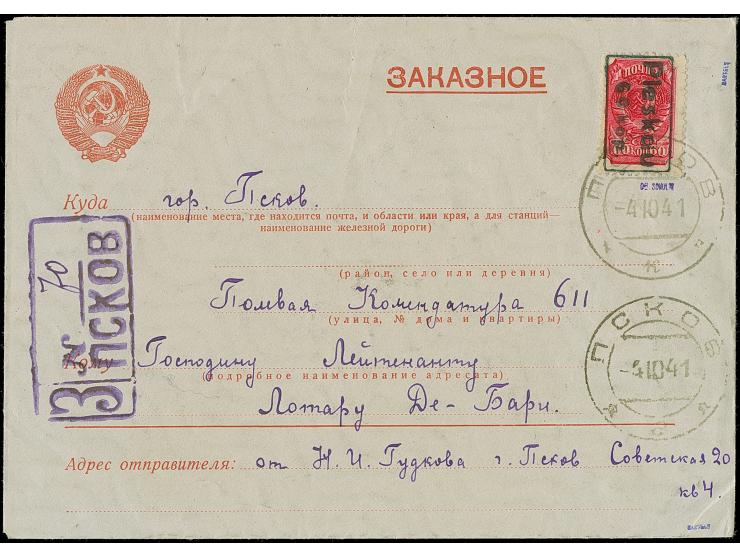 ЗАКАЗНОЕ
ПОЧТА
60 КОП 60
Pleskau
60 коп
ПСКОВ
-4 10 41
Куда гор. Псков.
(наименование места, где находится почта, и области или края, а для станций—
наименование железной дороги)
(район, село или деревня)
Полвая Комендатура 611
(улица, № дома и квартиры)
ПСКОВ
-4 10 41
З ПСКОВ
№ 70
Кому Господину Лейтенанту
(подробное наименование адресата)
Лотару Де-Бари.
Адрес отправителя: от Н. И. Гудкова г. Псков Советская 20
кв 4.